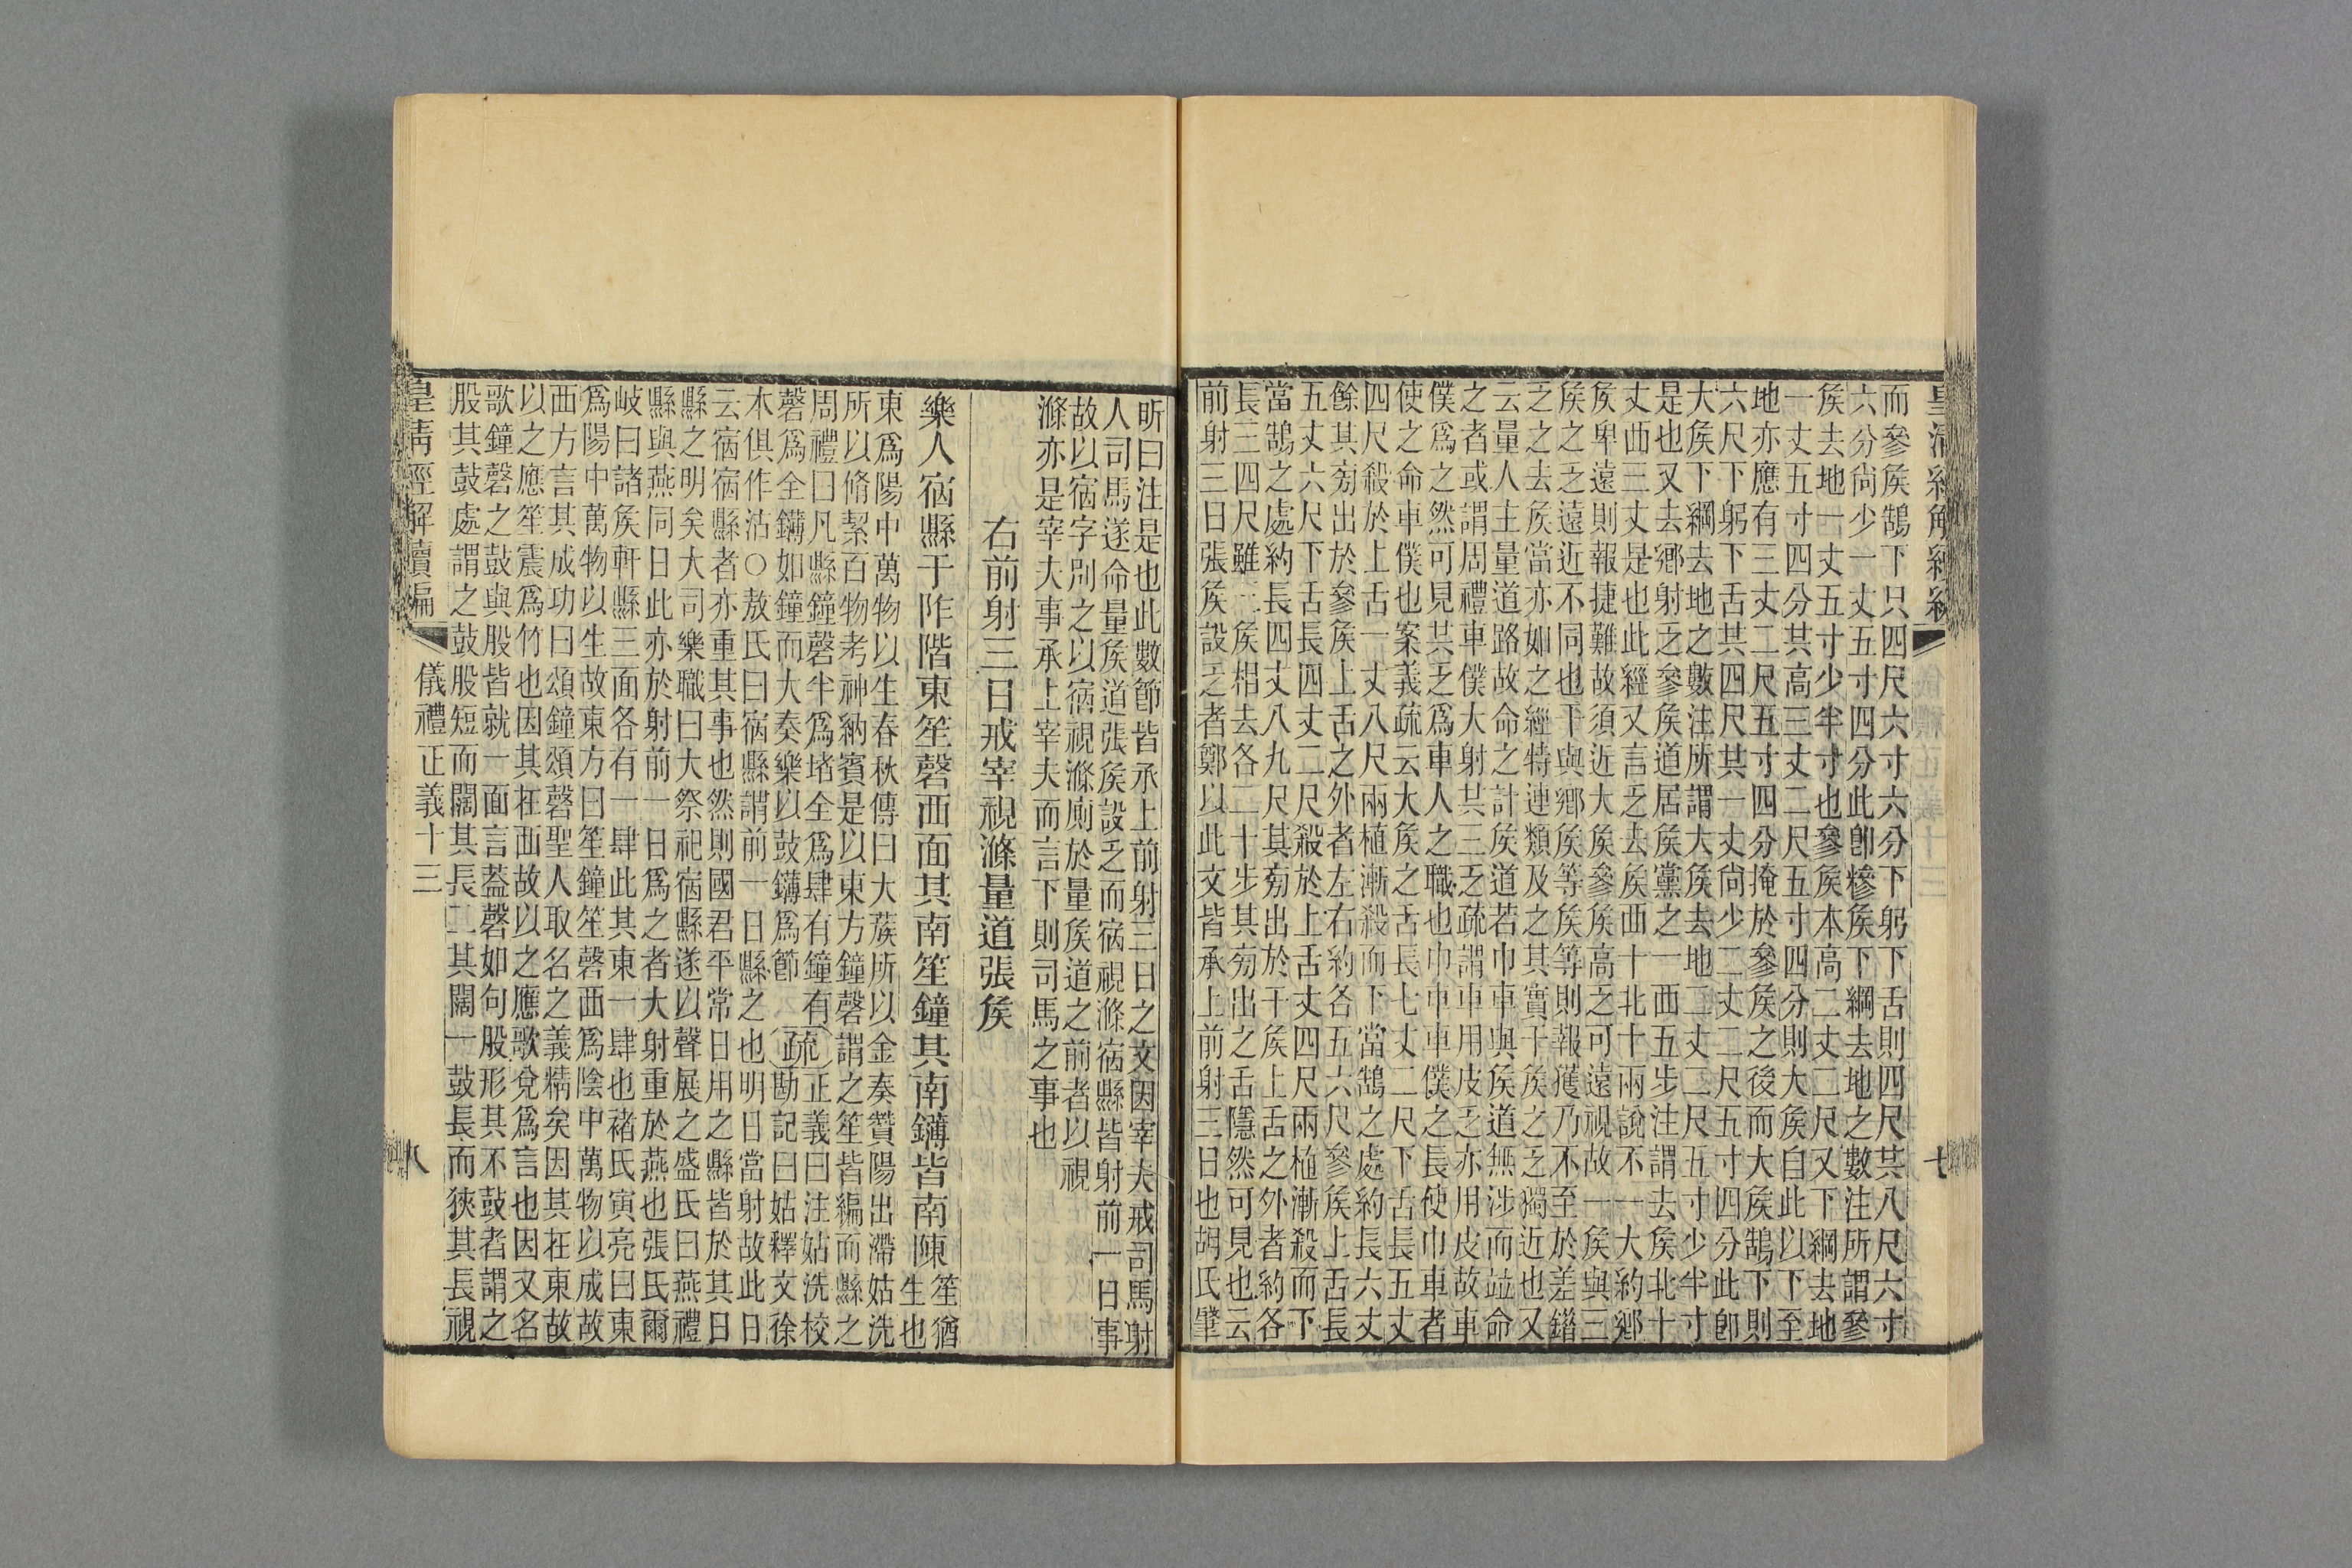 皇清經解續編
七
而參矦鵠下只四尺六寸六分下躬下舌則四尺其八尺六寸
六分尙少一丈五寸四分此卽糝矦下綱去地之數注所謂參
矦去地一丈五寸少半寸也參矦本高二丈二尺又下綱去地
一丈五寸四分其高三丈二尺五寸四分則大矦自此以下至
地亦應有三丈二尺五寸四分掩於參矦之後而大矦鵠下則
六尺下躬下舌其四尺其一丈尙少二丈二尺五寸四分此卽
大矦下綱去地之數注所謂大矦去地二丈二尺五寸少半寸
是也又去鄉射乏參矦道居矦黨之一西五步注謂去矦北十
丈西三丈是也此經又言乏去矦西十北十兩說不一大約鄉
矦卑遠則報捷難故須近大矦參矦高乏可遠視故一矦與三
矦之乏遠近不同也干與鄉矦等矦等則報獲乃不至於差鎦
乏之去矦當亦如之經特連類及之其實干矦之乏獨近也又
云量人主量道路故命之計矦道若巾車與矦道無涉而竝命
之者或謂周禮車僕大射共三乏疏謂車用皮乏亦用皮故車
僕爲之然可見其乏爲車人之職也巾車車僕之長使巾車者
使之命車僕也案義疏云大矦之舌長七丈二尺下舌長五丈
四尺殺於上舌一丈八尺兩植漸殺而下當鵠之處約長六丈
餘其㫄出於參矦上舌之外者左右約各五六尺參矦上舌長
五丈六尺下舌長四丈二尺殺於上舌丈四尺兩植漸殺而下
當鵠之處約長四丈八九尺其㫄出於干矦上舌之外者約各
長三四尺雖三矦相去各二十步其㫄出之舌隱然可見也云
前射三日張矦設乏者鄭以此文皆承上前射三日也胡氏肈
昕曰注是也此數節皆承上前射三日之文因宰夫戒司馬射
人司馬遂命量矦道張矦設乏而宿視滌宿縣皆射前一日事
故以宿字別之以宿視滌廁於量矦道之前者以視
滌亦是宰夫事承上宰夫而言下則司馬之事也
右前射三日戒宰視滌量道張矦
樂人宿縣于阼階東笙磬西面其南笙鐘其南鑮皆南陳笙猶
生也
東爲陽中萬物以生春秋傳曰大蔟所以金奏贊陽出滯姑洗
所以脩絜百物考神納賓是以東方鐘磬謂之笙皆編而縣之
周禮曰凡縣鐘磬半爲堵全爲肆有鐘有
磬爲全鑮如鐘而大奏樂以鼓鑮爲節
疏
正義曰注姑洗校
勘記曰姑釋文徐
本俱作沽○敖氏曰宿縣謂前一日縣之也明日當射故此日
云宿宿縣者亦重其事也然則國君平常日用之縣皆於其日
縣之明矣大司樂職曰大祭祀宿縣遂以聲展之盛氏曰燕禮
縣與燕同日此亦於射前一日爲之者大射重於燕也張氏爾
岐曰諸矦軒縣三面各有一肆此其東一肆也褚氏寅亮曰東
爲陽中萬物以生故東方曰笙鐘笙磬西爲陰中萬物以成故
西方言其成功曰頌鐘頌磬聖人取名之義精矣因其在東故
以之應笙震爲竹也因其在西故以之應歌兌爲言也因又名
歌鐘磬之鼓與股皆就一面言葢磬如句股形其不鼓者謂之
股其鼓處謂之鼓股短而闊其長二其闊一鼓長而狹其長視
皇清經解續編
儀禮正義十三
八